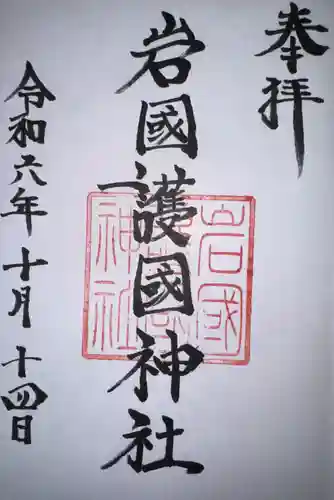 奉拝
岩國護國神社
岩國護國神社
令和六年十月十四日